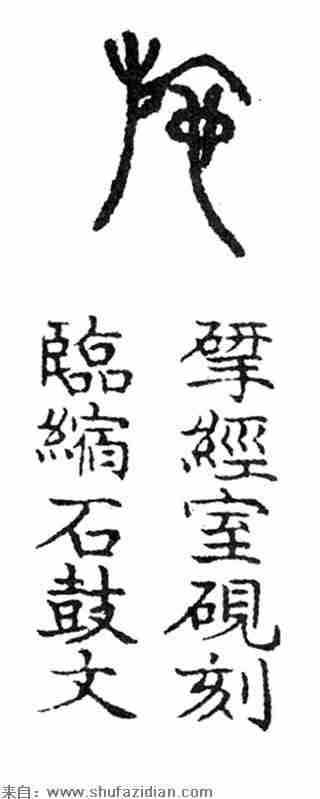 揅經室硯刻
臨縮石鼓文
来自：www.shufazidian.com